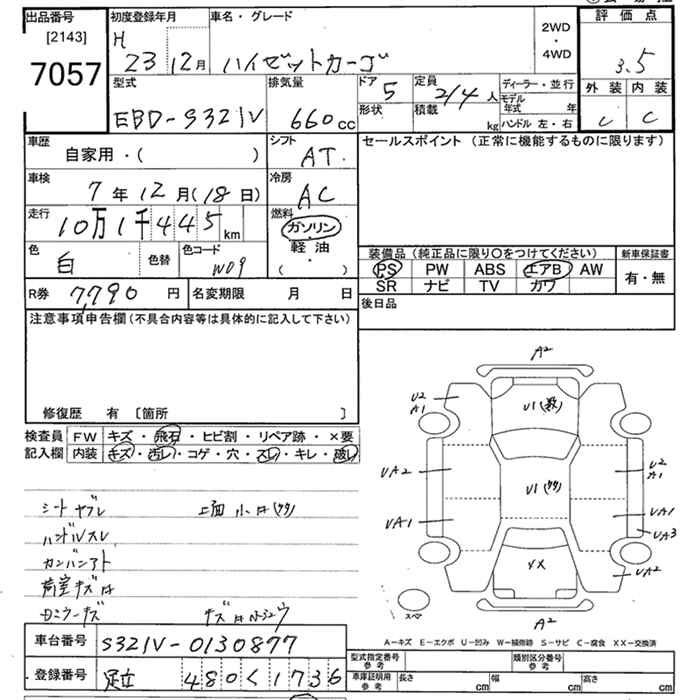 出品番号 初度登録年月 車名・グレード 2WD・4WD 評価点
[2143] H
7057 23 12月 ハイゼットカーゴ 3.5
型式 排気量 ドア 5 定員 2/4人 ディーラー・並行 外装 内装
EBD-S321V 660cc 形状 積載 kg モデル年式 年 C C
ハンドル 左・右
車歴 シフト セールスポイント (正常に機能するものに限ります)
自家用・( ) AT
車検 冷房
7年12月(18日) AC
走行 燃料
10万1千445km ガソリン
色 色替 色コード 軽油 装備品 (純正品に限り〇をつけてください) 新車保証書
白 W09 ( ・ ) PS PW ABS エアB AW 有・無
SR ナビ TV カワ
R券 7,790円 名変期限 月 日 後日品
注意事項申告欄(不具合内容等は具体的に記入して下さい)
修復歴 有 〔箇所 〕
検査員 FW キズ・飛石・ヒビ割・リペア跡・×要
記入欄 内装 キズ・汚レ・コゲ・穴・スレ・キレ・破レ
シートヤブレ
ハンドルスレ
カンバンアト
荷室キズ
A2
U2
A1
U1(数)
UA2
U1
U2
A1
UA1
UA1
UA3
XX
UA2
スペア
A2
A-キズ E-エクボ U-凹み W-補修跡 S-サビ C-腐食 XX-交換済
車台番号 S321V-0130877
型式指定番号 参考 類別区分番号 参考
登録番号 足立 480く1736
車庫証明用 参考 長さ cm 幅 cm 高さ cm